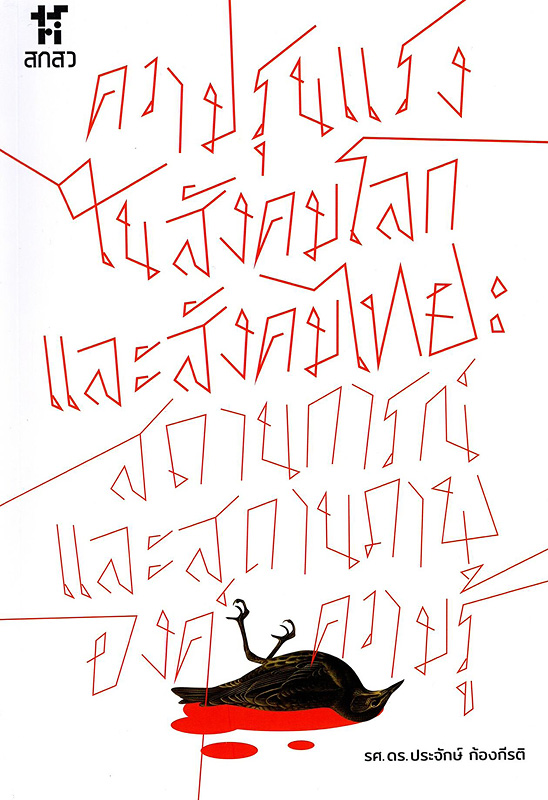 สกสว
ความรุนแรง
ในสังคมโลก
และสังคมไทย:
สถานการณ์
และสถานภาพ
องค์ความรู้
รศ.ดร.ประจักษ์ ก้องกีรติ